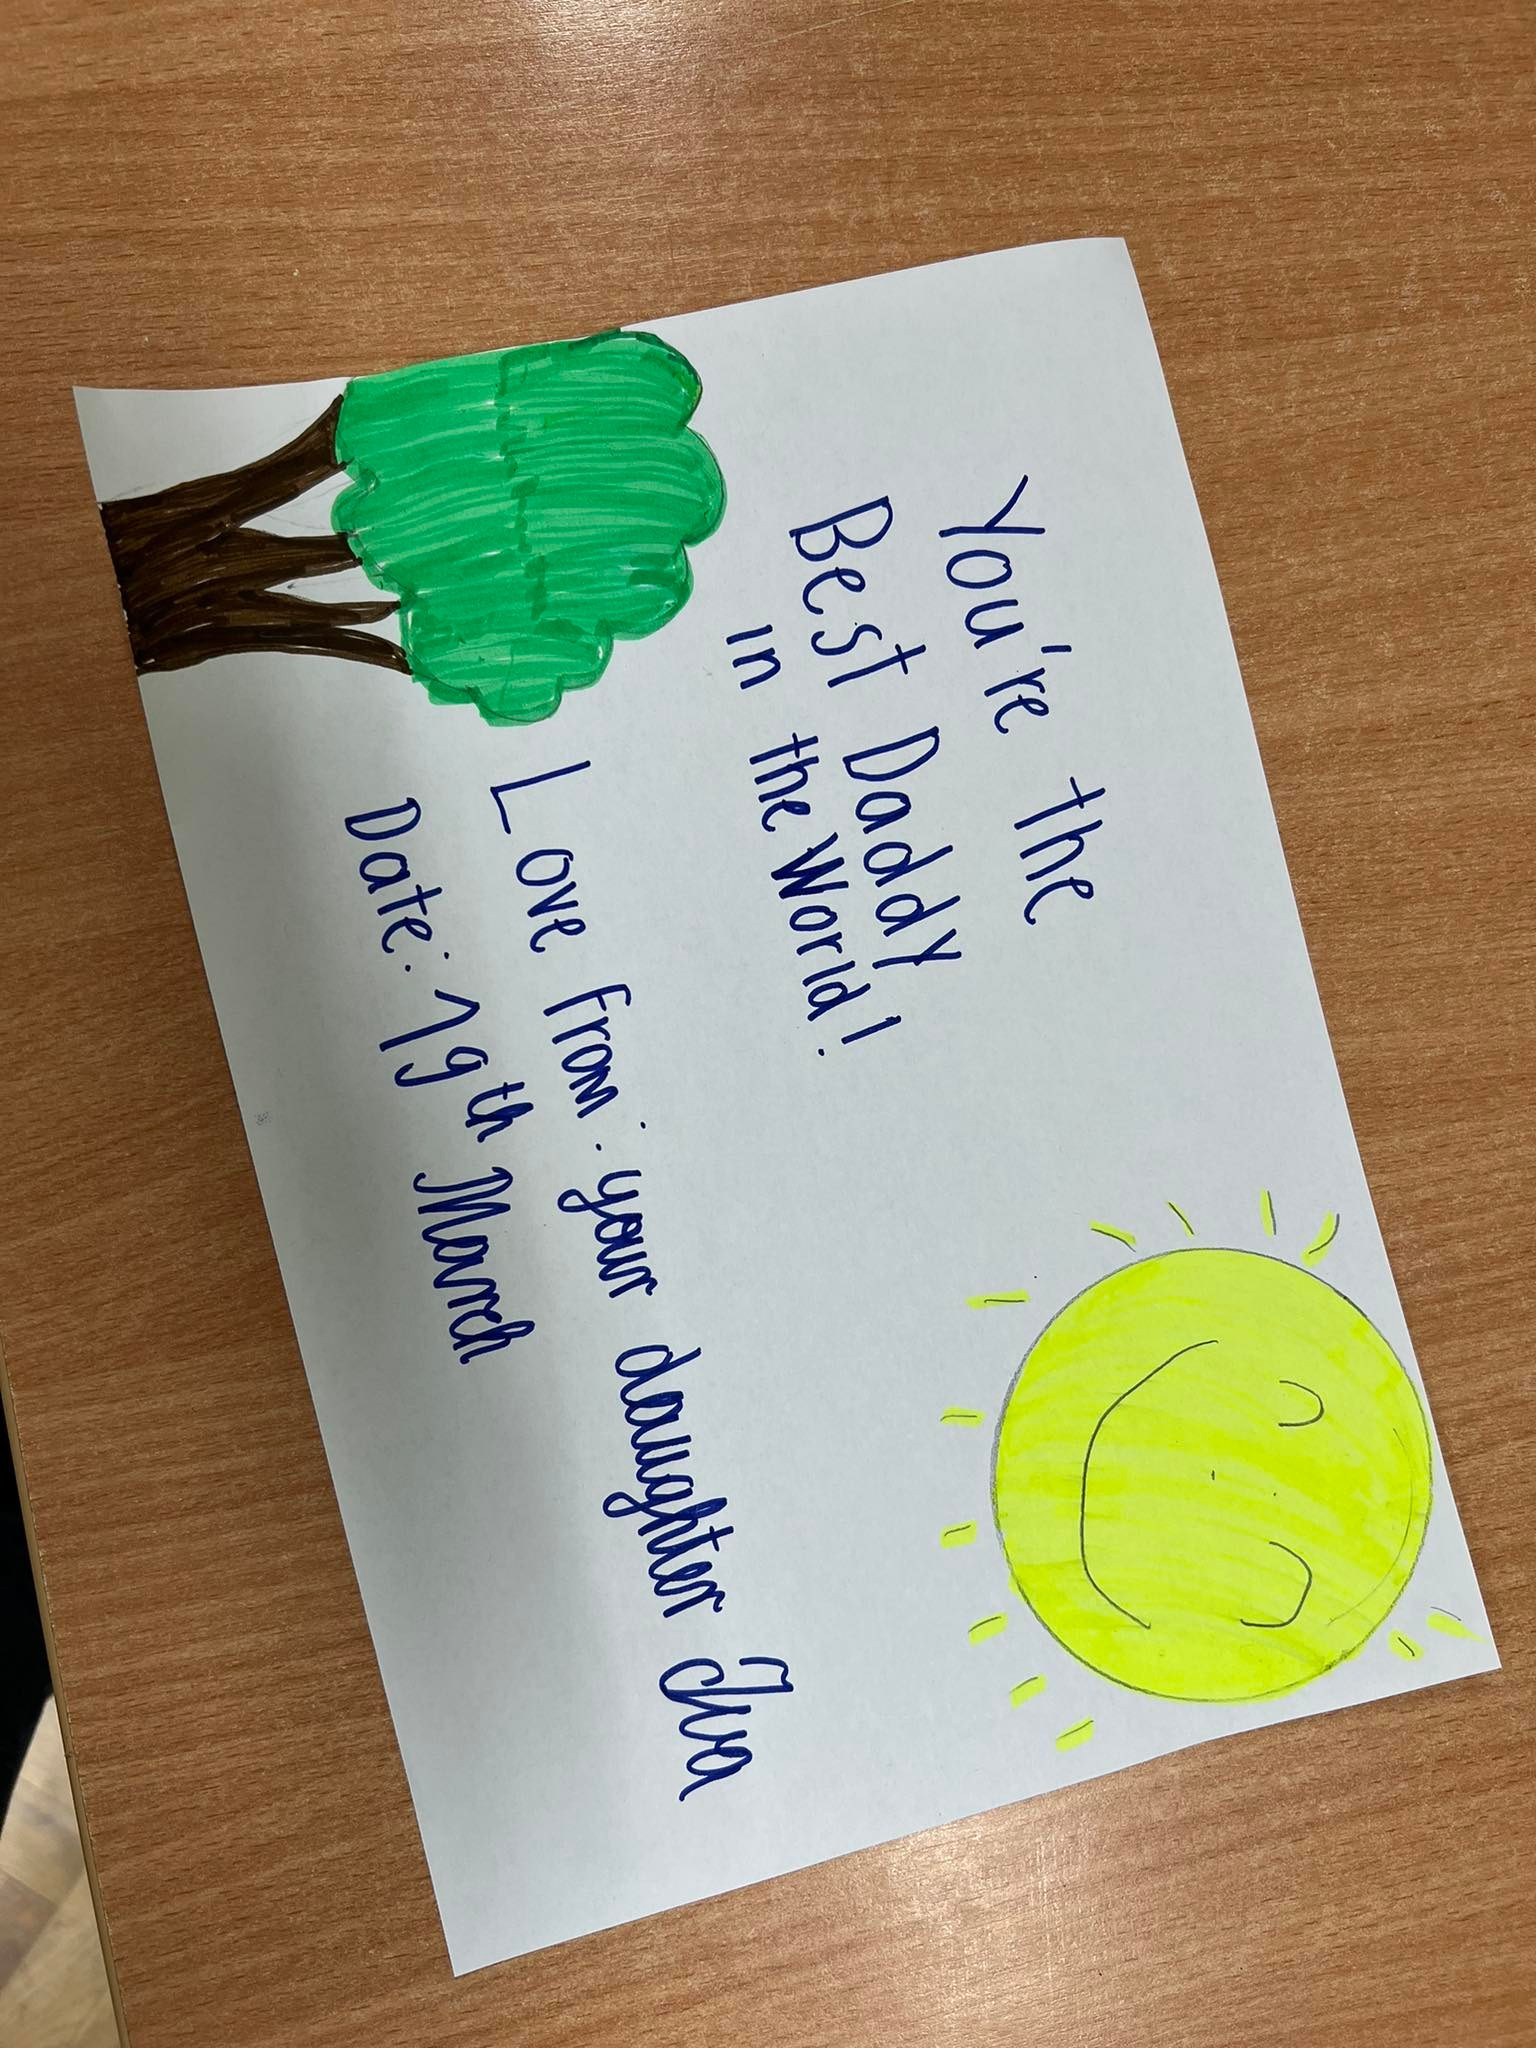 You're the
Best Daddy
in the World!
Love from: your daughter Iva
Date: 19th March